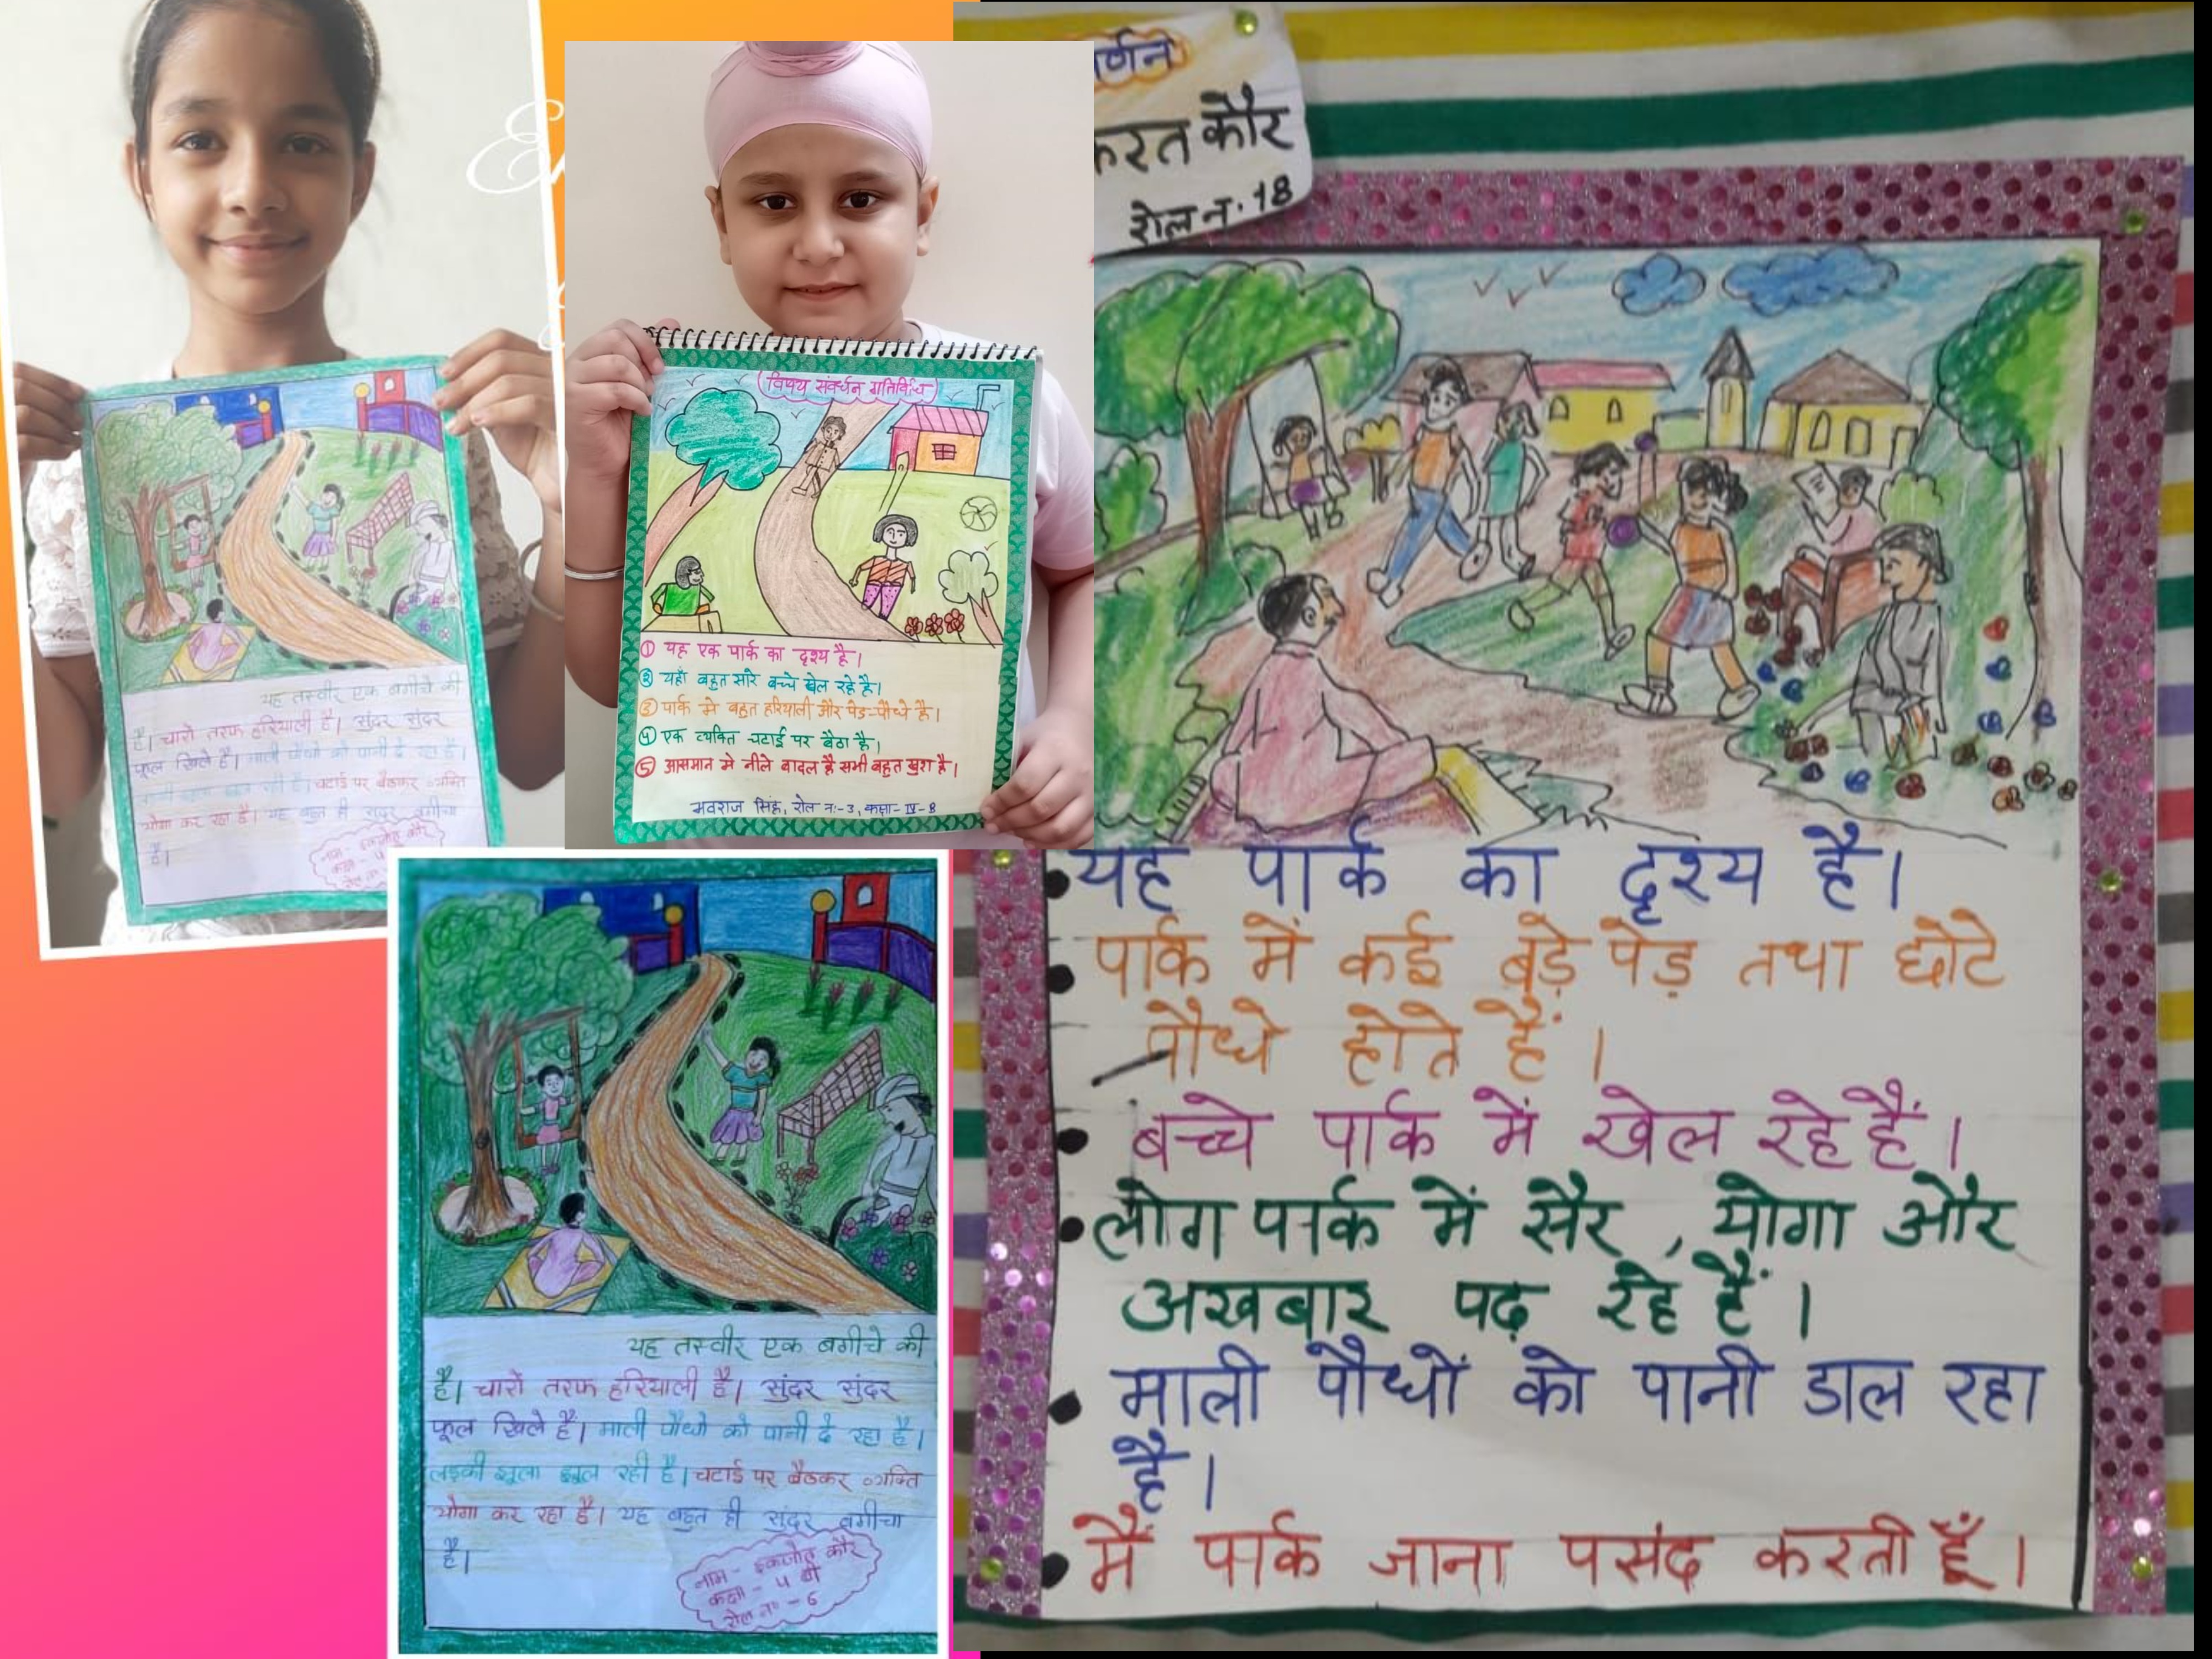 यह तस्वीर एक बगीचे की
है। चारों तरफ हरियाली है। सुंदर सुंदर
फूल खिले हैं। माली पौधो को पानी दे रहा है।
चटाई पर बैठकर व्यक्ति
योगा कर रहा है। यह बहुत ही सुंदर बगीचा
है।
विषय संवर्धन गतिविधि
① यह एक पार्क का दृश्य है।
② यहाँ बहुत सारे बच्चे खेल रहे है।
③ पार्क मे बहुत हरियाली और पेड़-पौधे है।
④ एक व्यक्ति चटाई पर बैठा है।
⑤ आसमान मे नीले बादल है सभी बहुत खुश है।
सिंह, रोल न:-3, कक्षा- IV-B
यह तस्वीर एक बगीचे की
है। चारों तरफ हरियाली है। सुंदर सुंदर
फूल खिले हैं। माली पौधो को पानी दे रहा है।
लड़की झूला झूल रही है। चटाई पर बैठकर व्यक्ति
योगा कर रहा है। यह बहुत ही सुंदर बगीचा
है।
नाम - इकजोत कौर
कक्षा - 4 बी
रोल न॰ - 6
र्णन
करत कौर
रोल न. 18
•यह पार्क का दृश्य है।
• पार्क में कई बड़े पेड़ तथा छोटे
पौधे होते हैं।
• बच्चे पार्क में खेल रहे हैं।
•लोग पार्क में सैर, योगा और
अखबार पढ़ रहे हैं।
• माली पौधों को पानी डाल रहा
है।
• मैं पार्क जाना पसंद करती हूँ।